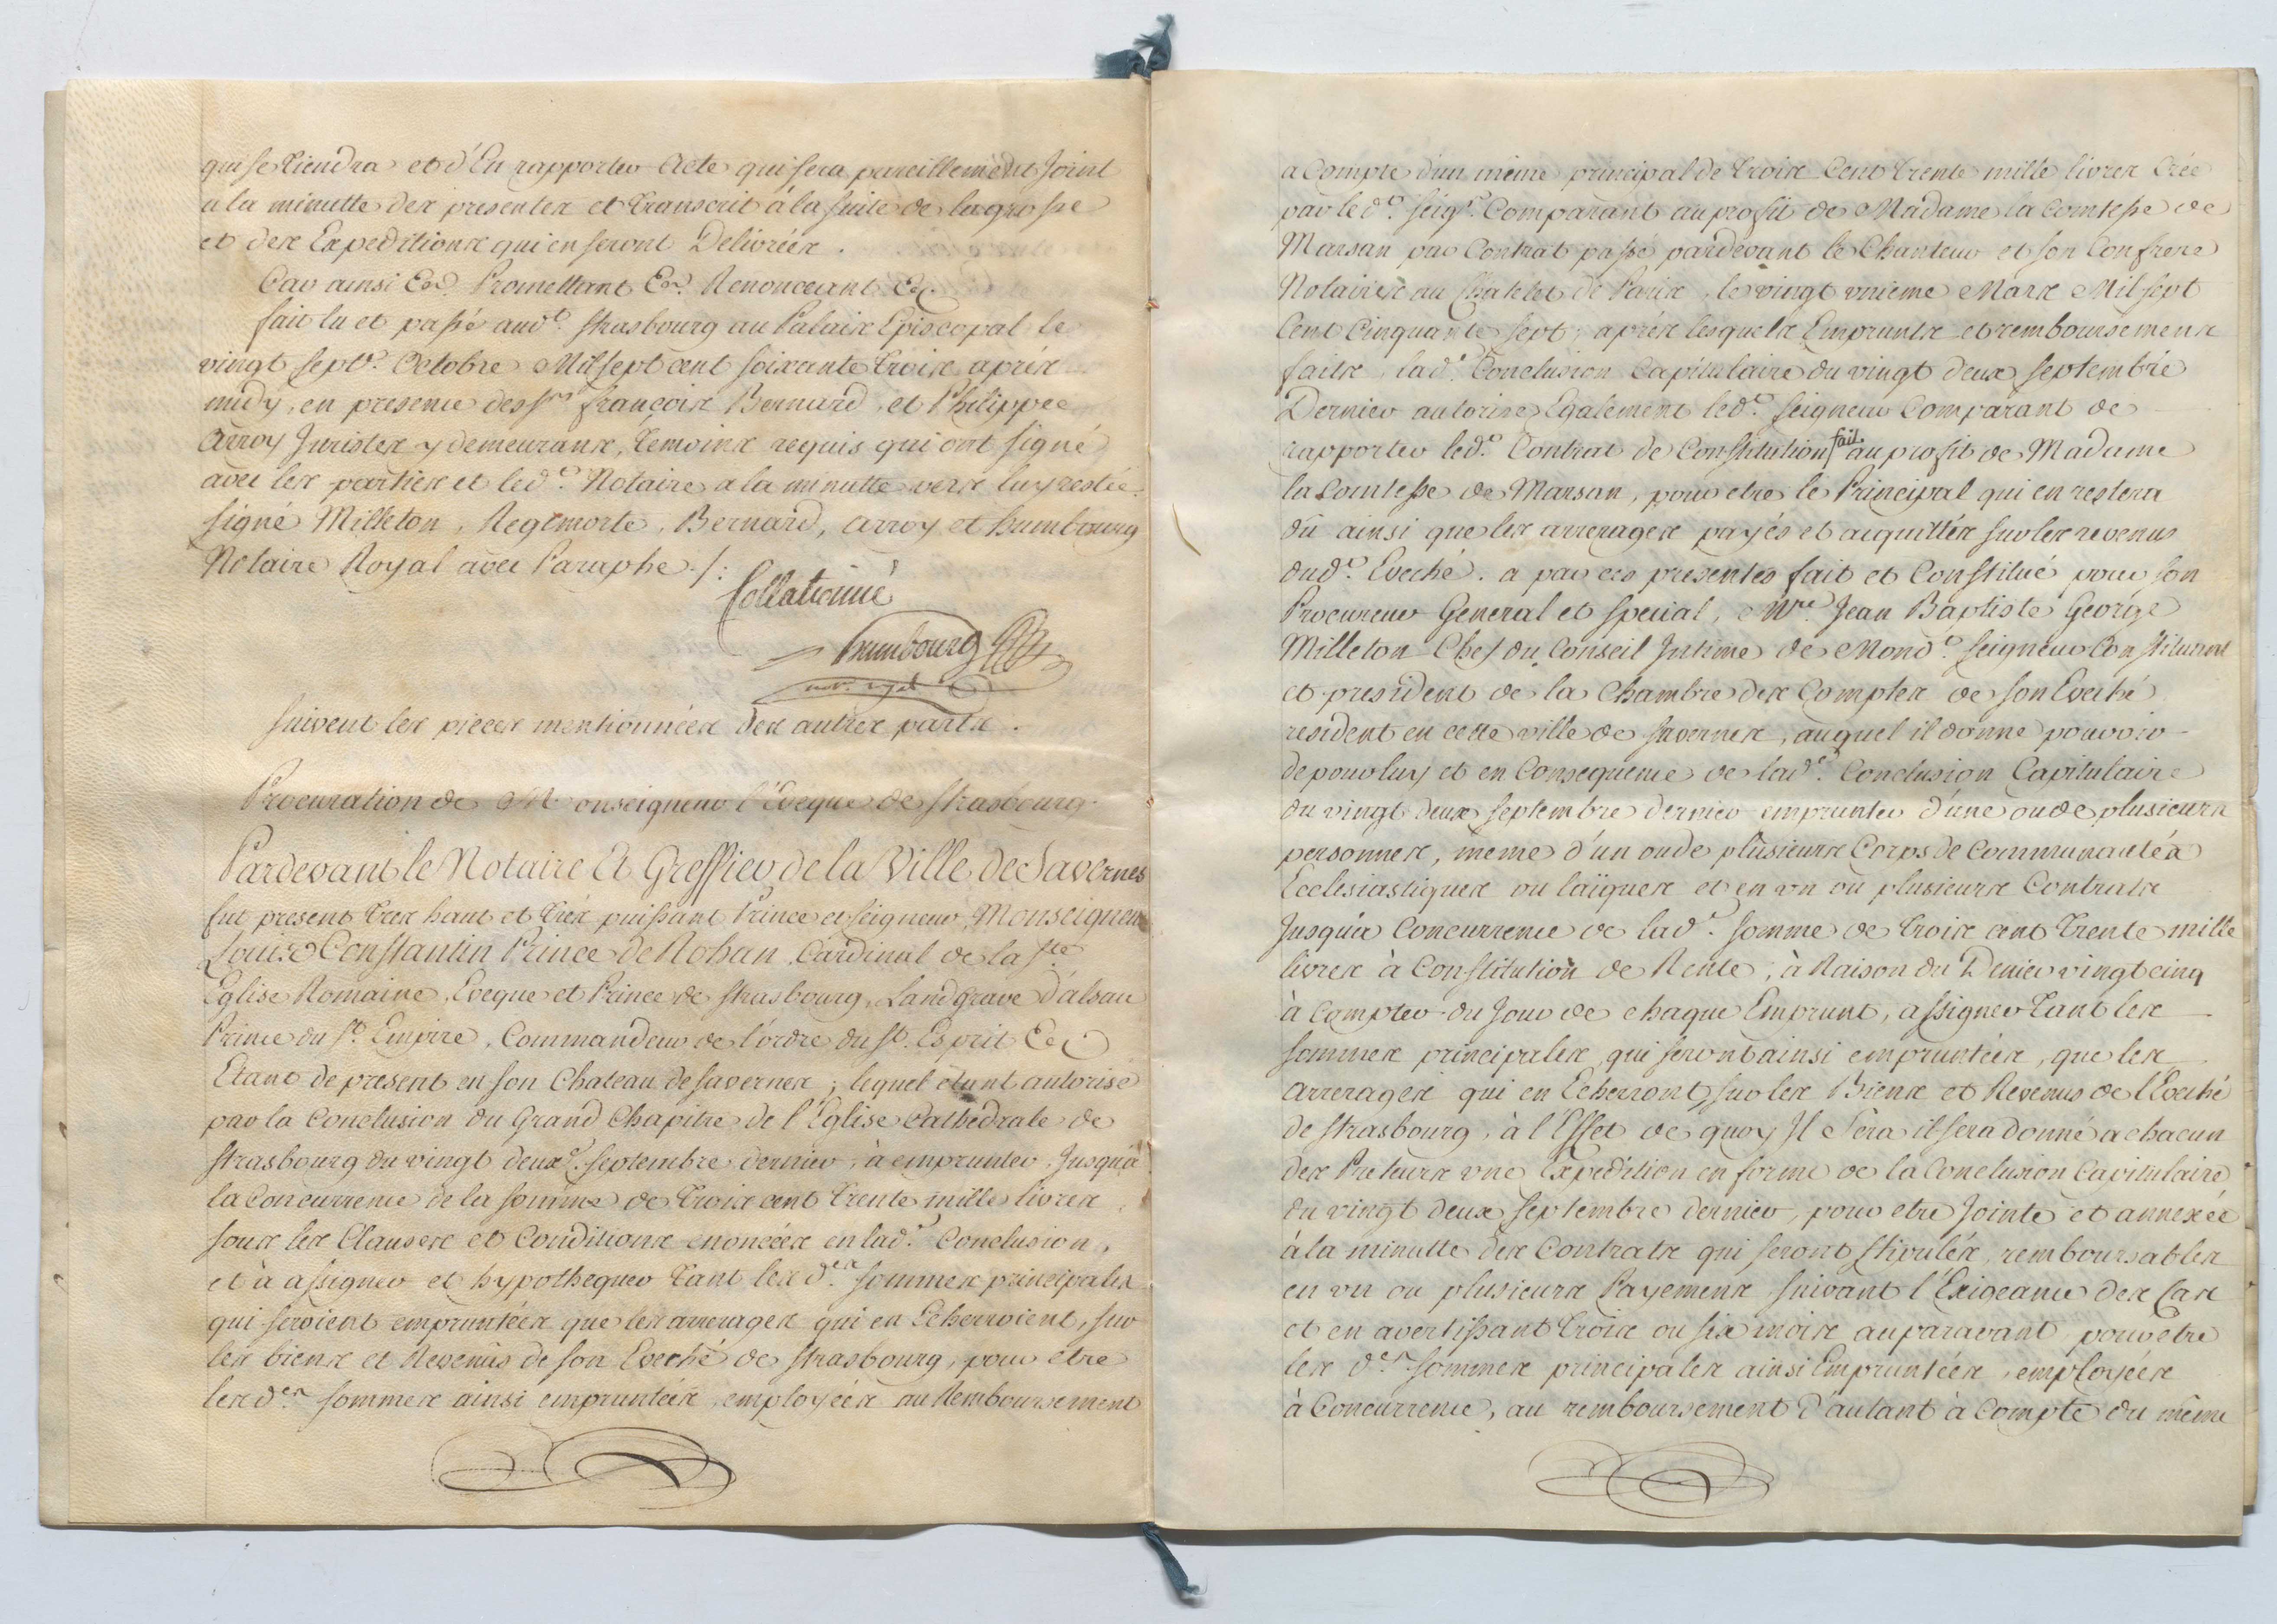 qui se tiendra et d'En rapporter Acte qui sera pareillement Joint
a la minutte des presentes et transcrit à la suite de la grosse
et des Expeditions qui en seront Delivrées.
Car ainsi &c.ª Promettant &c.ª Renonceant &c.
fait lu et passé aud.t Strasbourg au Palais Episcopal le
vingt sept.e Octobre Mil sept cent soixante trois après
midy, en presence des S.rs françois Bernard, et Philippe
Arroy Juristes y demeurans, temoins requis qui ont signé
avec les parties et led.t Notaire a la minutte vers luy restée.
signé Milleton, Reglmorte, Bernard, arroy et humbourg
Notaire Royal avec Paraphe ./:
Collationné
humbourg
not. royal
suivent les pieces mentionnées des autres parts.
Procuration de Monseigneur l'Eveque de Strasbourg.
Pardevant le Notaire Et Greffier de la Ville de Savernes
fut present tres haut et très puissant Prince et seigneur Monseigneur
Louis Constantin Prince de Rohan Cardinal de la S.te
Eglise Romaine, Eveque et Prince de Strasbourg, Landgrave d'alsace
Prince du S.t Empire, Commandeur de l'ordre du S.t Esprit &c
Etant de present en son Chateau de Savernes, lequel etant autorisé
par la Conclusion du Grand Chapitre de l'Eglise Cathedrale de
Strasbourg du vingt deux.e septembre dernier, à emprunter Jusqu'à
la Concurrence de la somme de trois cent trente mille livres
sous les Clauses et Conditions enoncées en lad.e Conclusion,
et à assigner et hypothequer tant les d.es sommes principales
qui seroient empruntées que les arrerages qui en Echerroient, sur
les biens et Revenus de son Eveché de Strasbourg, pour etre
les d.es sommes ainsi empruntées employées au Remboursement
a Compte d'un même principal de trois Cent trente mille livres Crée
par le d.t seig.r Comparant au profit de Madame la Comtesse de
Marsan par Contrat passé pardevant le Chanteur et son Confrere
Notaires au Chatelet de Paris, le vingt unieme Mars Mil sept
Cent Cinquante sept, aprés lesquels Emprunts et remboursemens
faits, lad.e Conclusion Capitulaire du vingt deux septembre
Dernier autorise Egalement led.t seigneur Comparant de
rapporter led.t Contrat de Constitution fait au profit de Madame
la Comtesse de Marsan, pour etre le Principal qui en restera
dû ainsi que les arrerages payés et acquittés sur les revenus
dud.t Eveché. a par ces presentes fait et Constitué pour son
Procureur General et special, M.re Jean Baptiste George
Milleton Chef du Conseil Intime de Mond.t seigneur Constituant
et president de la Chambre des Comptes de son Eveché
resident en cette ville de Savernes, auquel il donne pouvoir
de pour luy et en Consequence de lad.e Conclusion Capitulaire
du vingt deux septembre dernier emprunter d'une ou de plusieurs
personnes, même d'un ou de plusieurs Corps de Communautés
Ecclesiastiques ou laïques et en un ou plusieurs Contrats
Jusqu'à Concurrence de lad.e somme de trois cent trente mille
livres à Constitution de Rente, à Raison du Denier vingt cinq
à Compter du Jour de chaque Emprunt, assigner tant les
sommes principales qui seront ainsi empruntées, que les
arrerages qui en Echerront, sur les Biens et Revenus de l'Eveché
de Strasbourg, à l'Effet de quoy Il Sera il sera donné a chacun
des Preteurs une Expedition en forme de la Conclusion Capitulaire
du vingt deux septembre dernier, pour etre Jointe et annexée
à la minutte des Contrats qui seront stipulés, remboursables
en un ou plusieurs Payemens suivant l'Exigeance des Cas
et en avertissant trois ou six mois auparavant, pour etre
les d.es sommes principales ainsi Empruntées, employées
à Concurrence, au remboursement d'autant à Compte du même